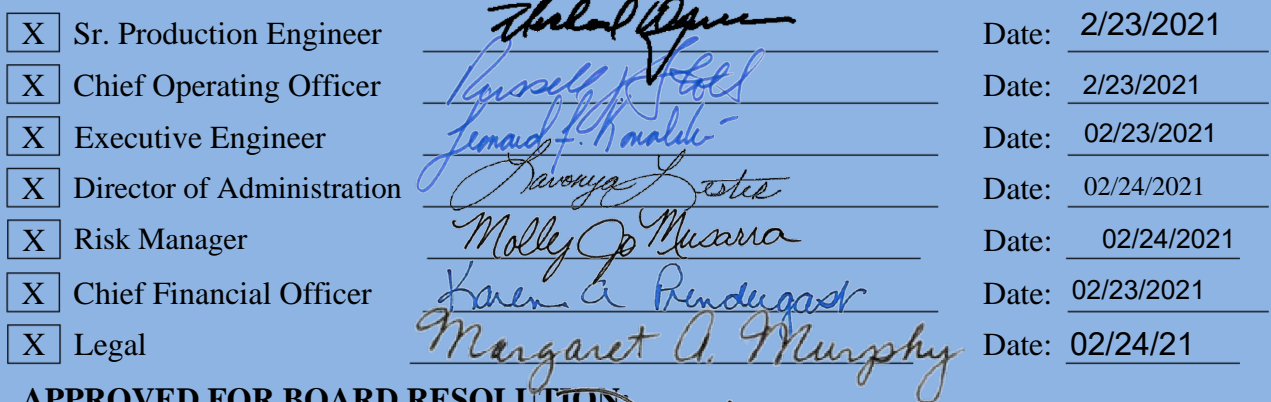 X Sr. Production Engineer Date: 2/23/2021
X Chief Operating Officer Russell J Stoll Date: 2/23/2021
X Executive Engineer Leonard F. Kowalski Date: 02/23/2021
X Director of Administration Lavonya Lester Date: 02/24/2021
X Risk Manager Molly Jo Musarra Date: 02/24/2021
X Chief Financial Officer Karen A Prendergast Date: 02/23/2021
X Legal Margaret A. Murphy Date: 02/24/21
APPROVED FOR BOARD RESOLUTION: